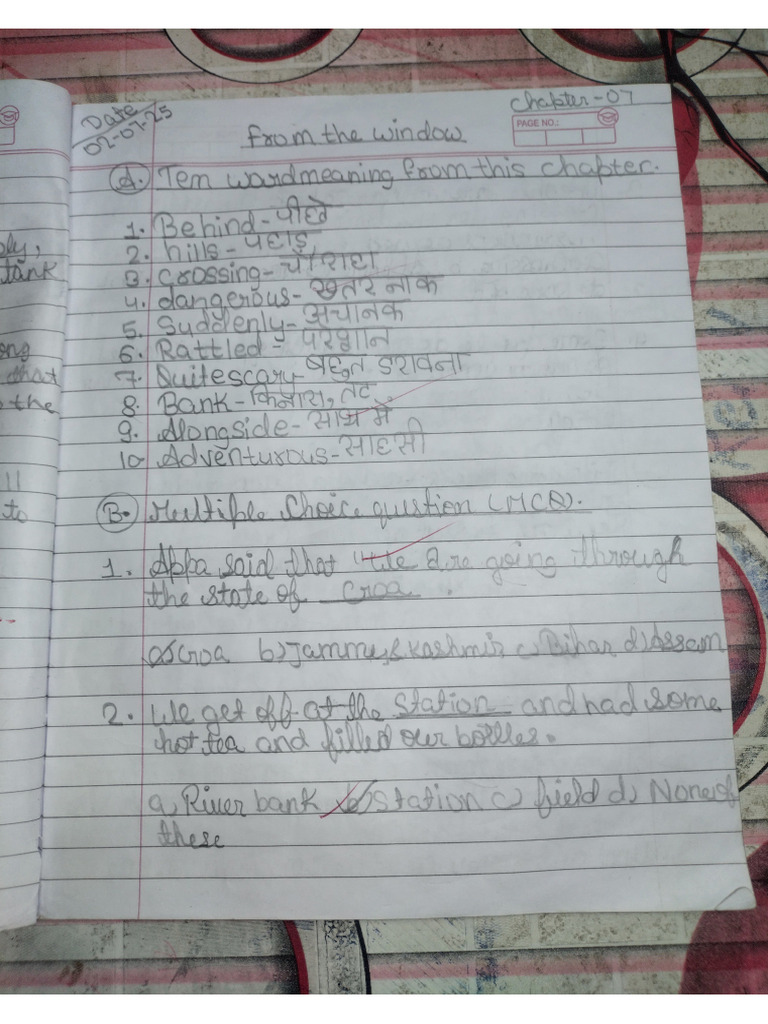 Date
02-07-25
Chapter-07
PAGE NO.:
from the window
A. Tem wardmeaning from this chapter.
1. Behind-पीछे
2. hills-पहाड़
3. crossing-चौराहा
4. dangerous-खतरनाक
5. Suddenly-अचानक
6. Rattled-परेशान
7. Quitescary-बहुत डरावना
8. Bank-किनारा, तट
9. Alongside-साथ में
10. Adventurous-साहसी
B. Multiple Choice question (MCQ).
1. Appa said that "we are going through
the state of Croa.
a) Croa b) Jammu & Kashmir c) Bihar d) Assam
2. We get off at the Station and had some
hot tea and filled our bottles.
a) River bank b) Station c) field d) None of
these
ply,
tank
ong
that
the
ll
to